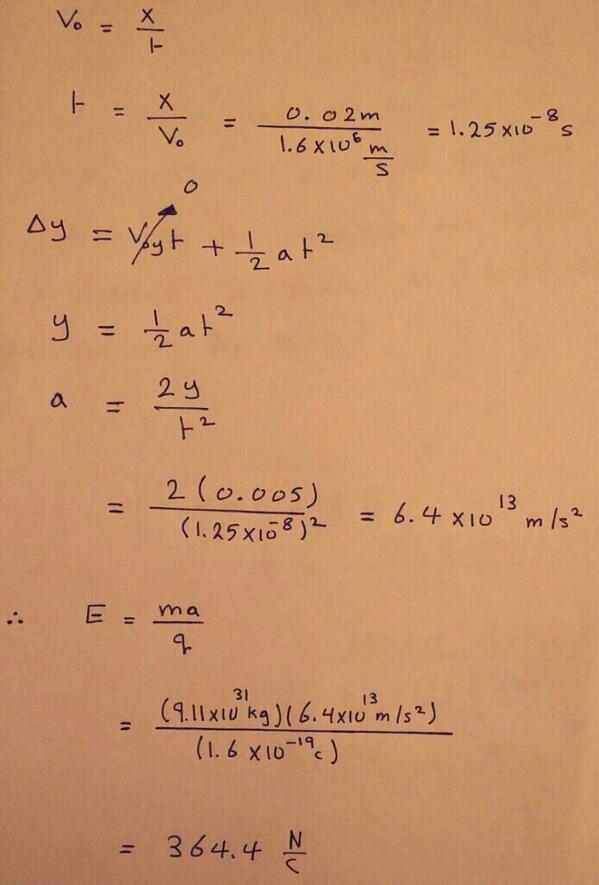 V₀ = x/t
t = x/V₀ = 0.02m/(1.6×10⁶ m/s) = 1.25×10⁻⁸ s
0
Δy = V₀yt + 1/2 at²
y = 1/2 at²
a = 2y/t²
= 2(0.005)/(1.25×10⁻⁸)² = 6.4×10¹³ m/s²
∴ E = ma/q
= (9.11×10³¹ kg)(6.4×10¹³ m/s²)/(1.6×10⁻¹⁹c)
= 364.4 N/C